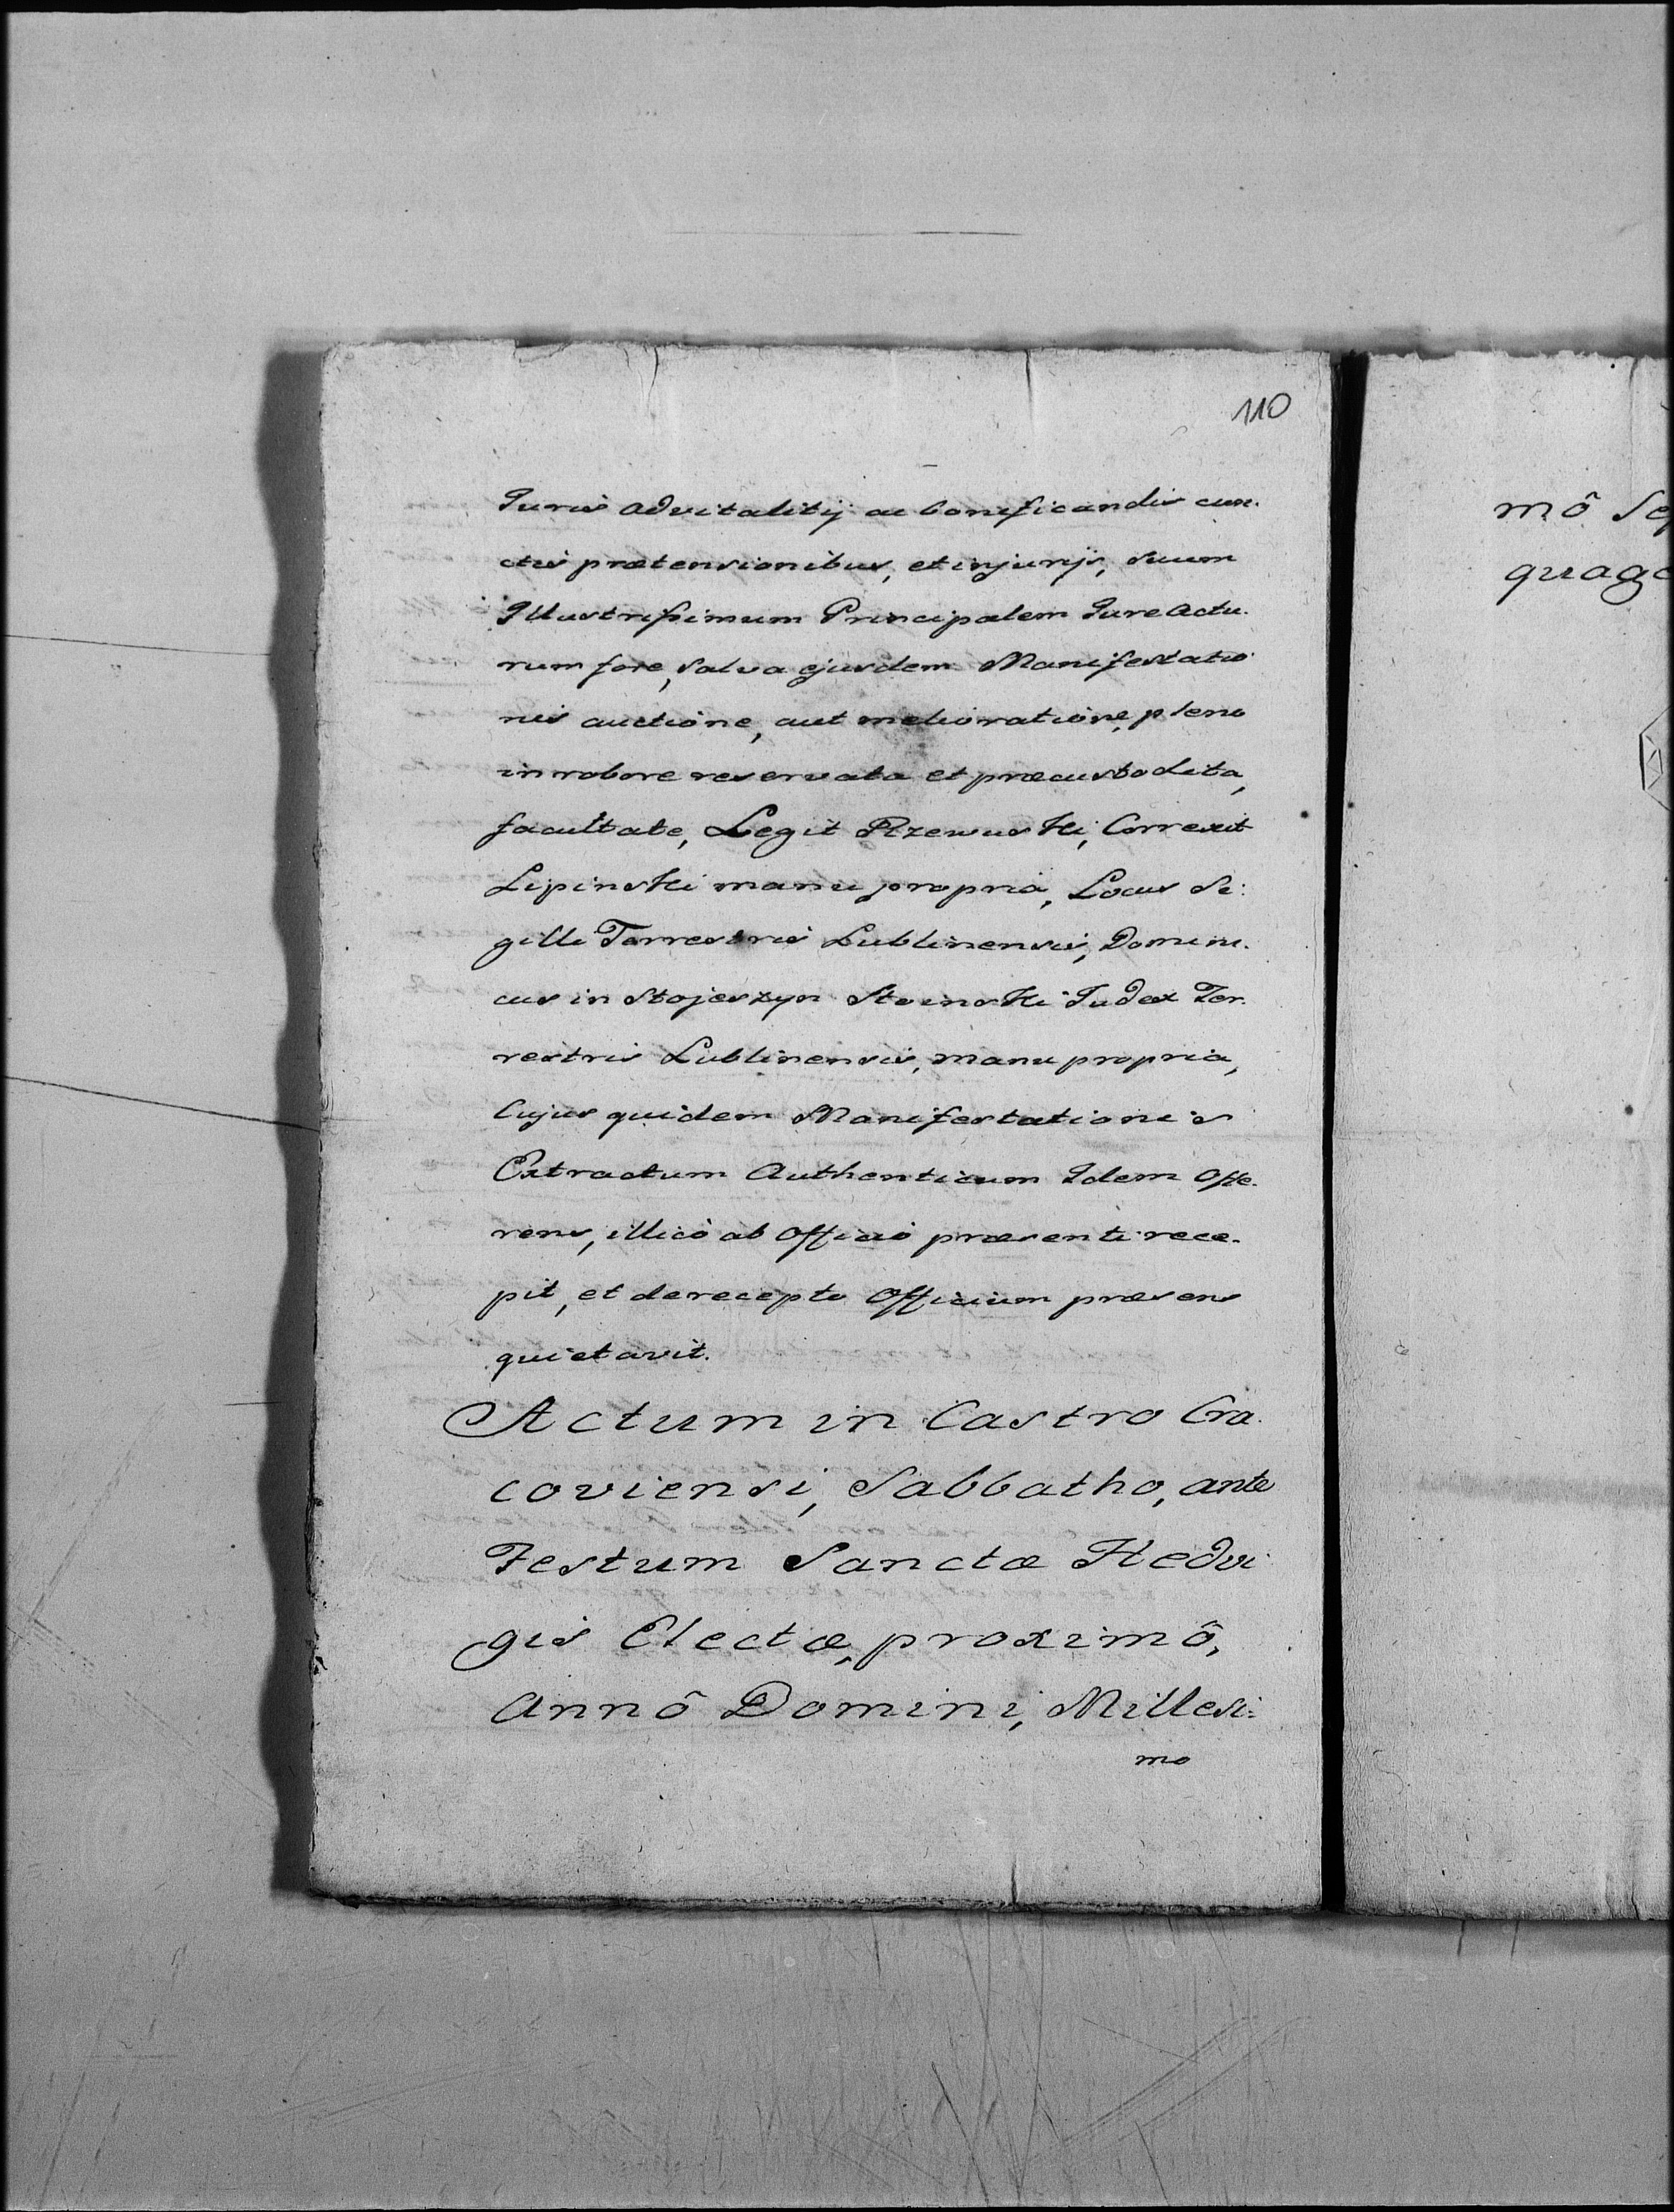 110
Juris advitalitij ac bonificandis cun-
ctis prætensionibus, et injurijs, suum
Illustrissimum Principalem Jure actu-
rum fore, salva ejusdem Manifestatio-
nis auctione, aut melioratione, pleno
in robore reservata et præcustodita,
facultate, Legit Rzewuski, Correxit
Lipinski manu propria, Locus Si-
gilli Terrestris Lublinensis, Domini-
cus in Stojeszyn Stoinski Judex Ter-
restris Lublinensis, manu propria,
Cujus quidem Manifestationis
Extractum Authenticum Idem Offe-
rens, illicò ab Officiô præsenti rece-
pit, et de recepto Officium præsens
quietavit.
Actum in Castro Cra-
coviensi, Sabbatho, ante
Festum Sanctæ Hedvi-
gis Electæ, proximô,
Annô Domini, Millesi:
mo
mô Sep
quage